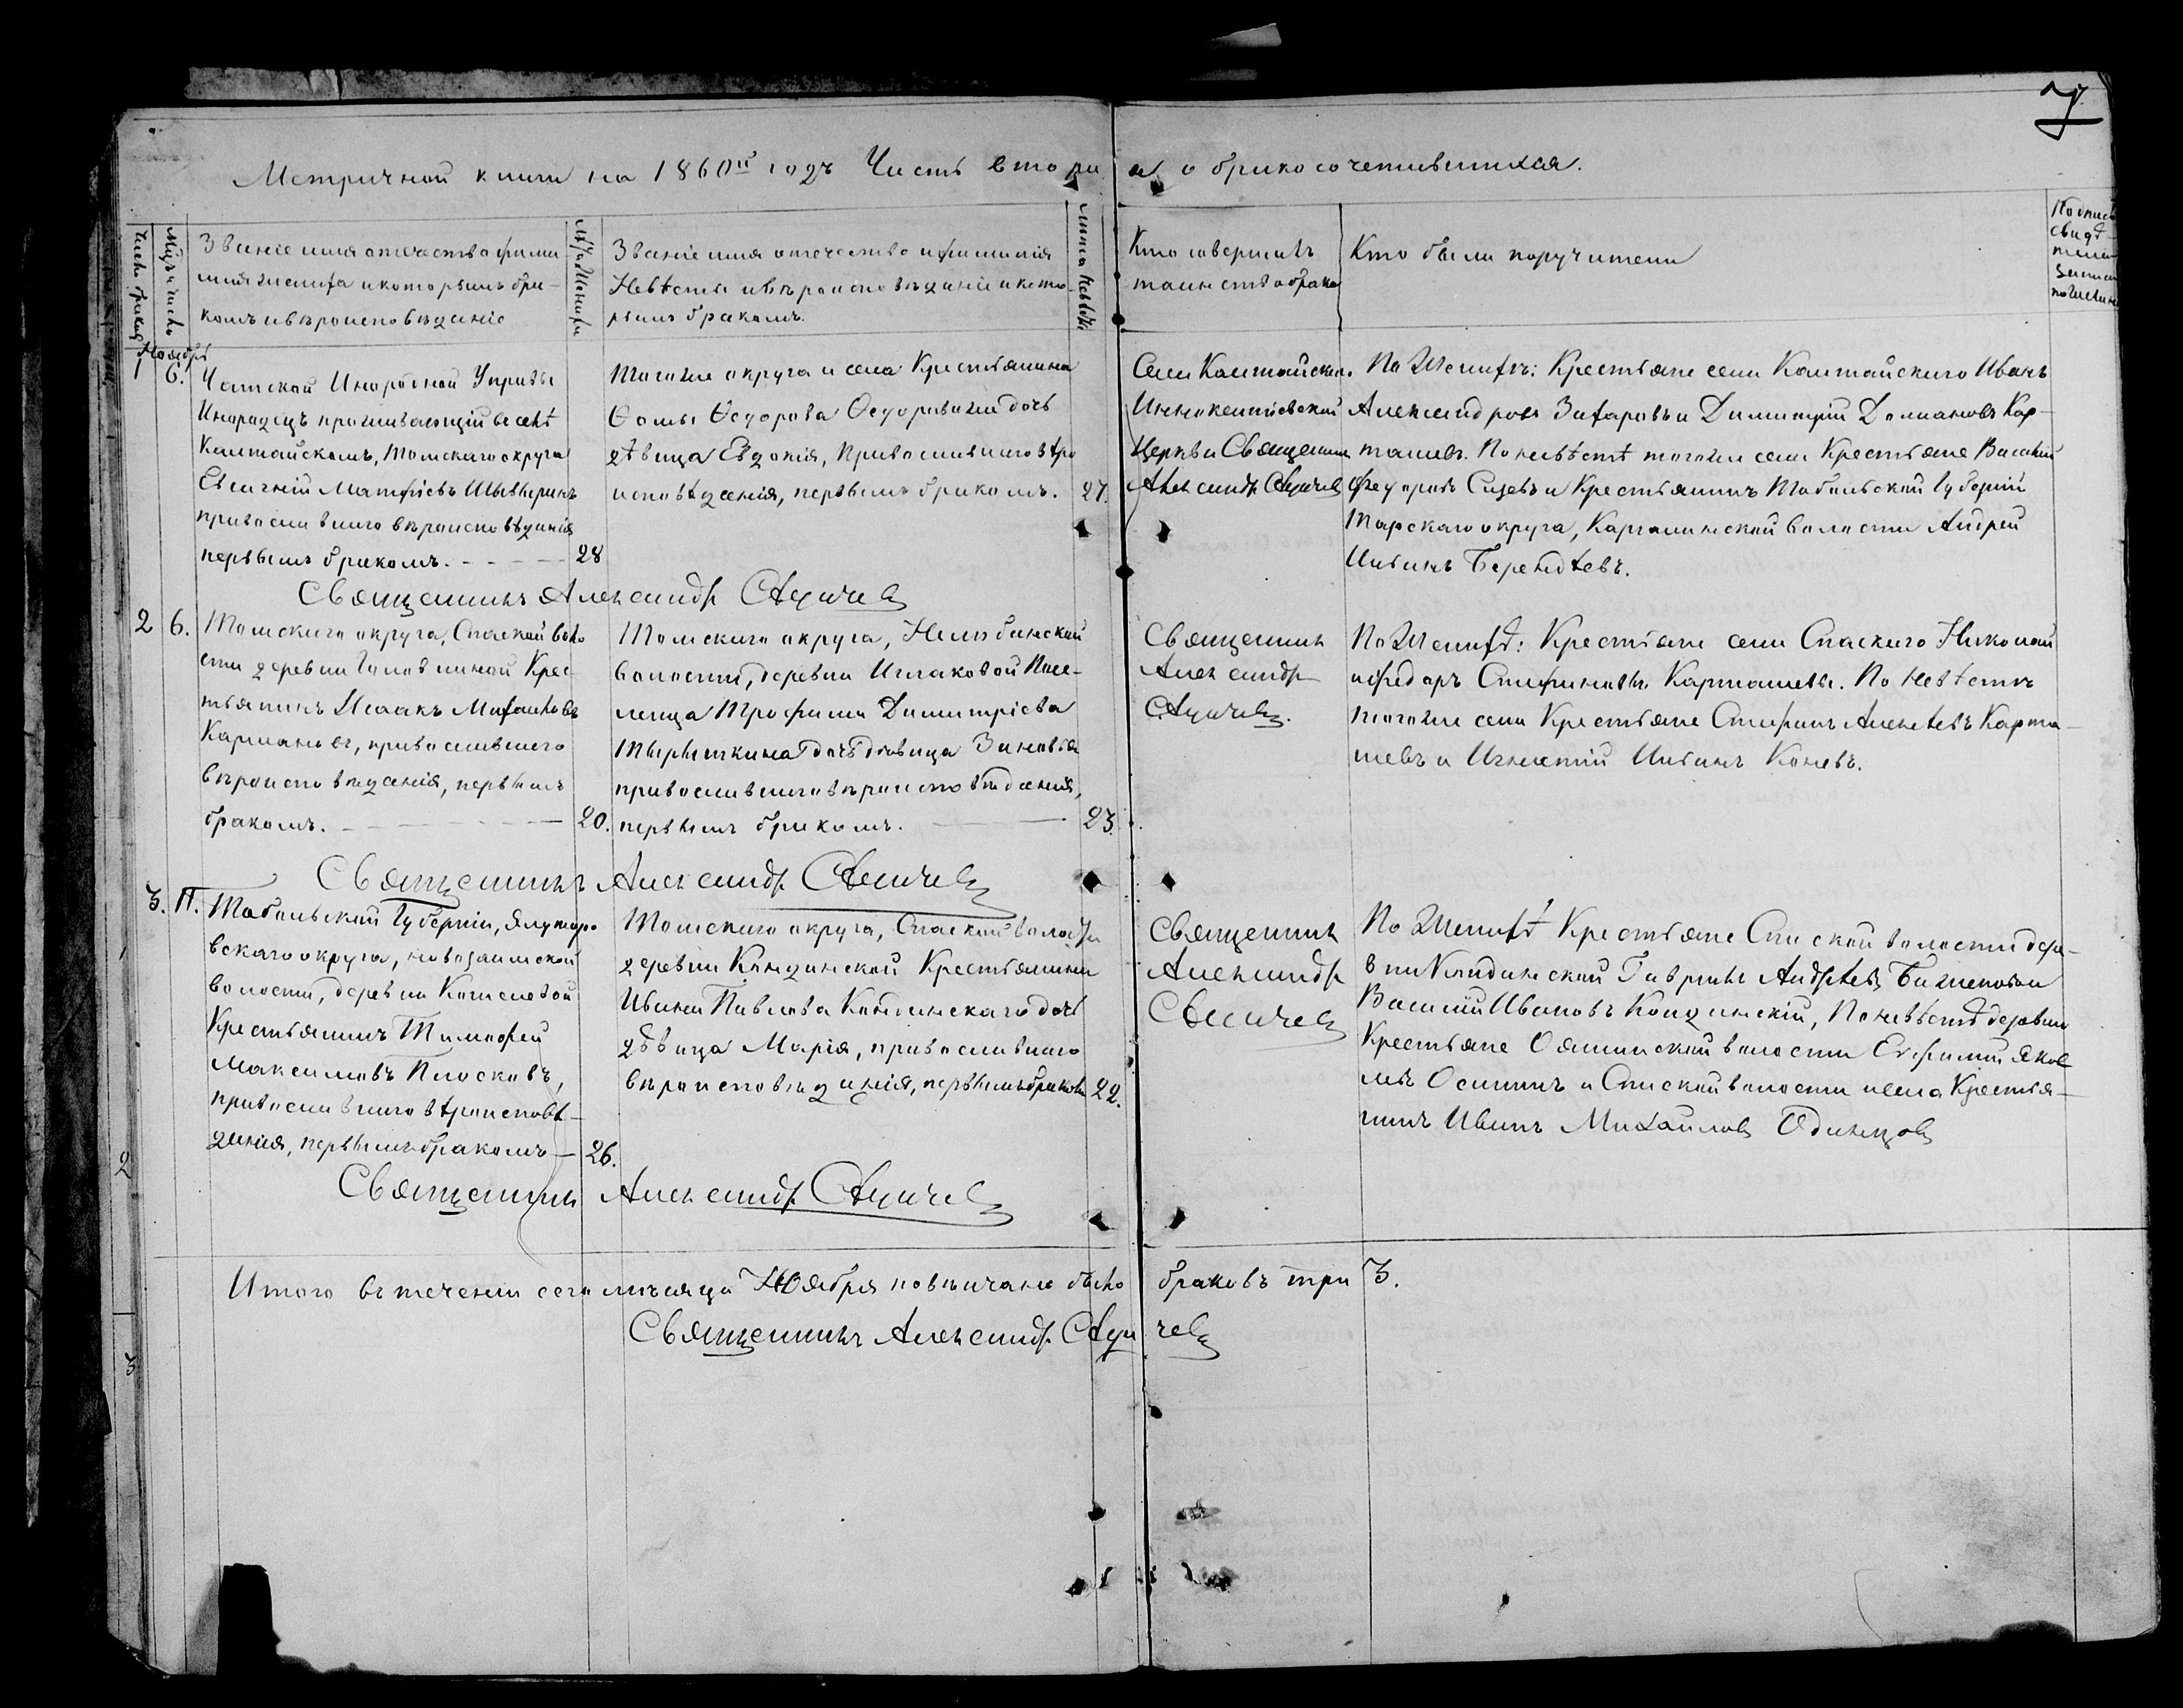 7
Метричной книги на 1860й годъ Часть вторая о бракосочетавшихся.
Число браковъ
Мѣсяцъ и число
Званіе имя отечество фами-
лия жениха и которымъ бра-
комъ и вѣроисповѣданіе
Лѣта Жениха
Званіе имя отечество и фамилія
Невѣсты и вѣроисповѣданіе и кото-
рымъ бракомъ.
лита Невѣсты
Кто совершалъ
таинство брака
Кто были поручители
Подпись
свидѣ-
телей
записи
по желанію
Ноябрь
1
6.
Чатской Инородной Управы
Инородецъ проживающій въ селѣ
Калтайскомъ, Томскаго округа
Евгеній Матфіевъ
православнаго вѣроисповѣданія
первымъ бракомъ.
28
Тогоже округа и села Крестьянина
Ѳомы Ѳедорова дочь
дѣвица Евдокія, Православнаго вѣро
исповѣданія, первымъ бракомъ.
27.
Села Калтайскаго
Иннокентіевской
Церкви Священникъ
Александръ
По Женихѣ: Крестьяне села Калтайскаго Иванъ
Александровъ Захаровъ и Димитрій Кар-
ташевъ. По невѣстѣ тогоже села Крестьяне Василій
Федоровъ и Крестьянинъ Тобольской Губерніи
Тарскаго округа, Каргалинской волости Андрей
Берендѣевъ.
Священникъ Александръ
2
6.
Томскаго округа, Спаской воло
сти деревни Головниной Крес-
тьянинъ Исаакъ
православнаго
вѣроисповѣданія, первымъ
бракомъ.
20.
Томскаго округа, Нелюбинской
волости, деревни Иглаковой Посе-
ленца Трофима Димитріева
дочь дѣвица Зиновья
православнаго вѣроисповѣданія,
первымъ бракомъ.
23.
Священникъ
Александръ
По Женихѣ: Крестьяне села Спаскаго Николай
и Федоръ Стефановы Карташевы. По Невѣстѣ
тогоже села Крестьяне Стефанъ Алексѣевъ Карта-
шевъ и Игнатій Коневъ.
Священникъ Александръ
3.
11.
Тобольской Губерніи, Ялуторо
вскаго округа, новозаимской
волости, деревни
Крестьянинъ Тимофей
Максимовъ Плосковъ,
православнаго вѣроисповѣ-
данія, первымъ бракомъ
26.
Томскаго округа, Спаской волости
деревни Кандинской Крестьянина
Ивана Павлова Кандинскаго дочь
дѣвица Марія, православнаго
вѣроисповѣданія, первымъ бракомъ
22.
Священникъ
Александръ
По Женихѣ Крестьяне Спаской волости дере-
вни Кандинской Гавріилъ Андрѣевъ
Василій Ивановъ Кандинскій, По невѣстѣ деревни
Крестьяне Ояшинской волости Евфимій Яков
левъ Осипинъ и Спаской волости и села Крестья-
нинъ Иванъ Михайловъ Одинцовъ
Священникъ Александръ
Итого въ теченіи сего мѣсяца Ноября повѣнчано было браковъ три 3.
Священникъ Александръ